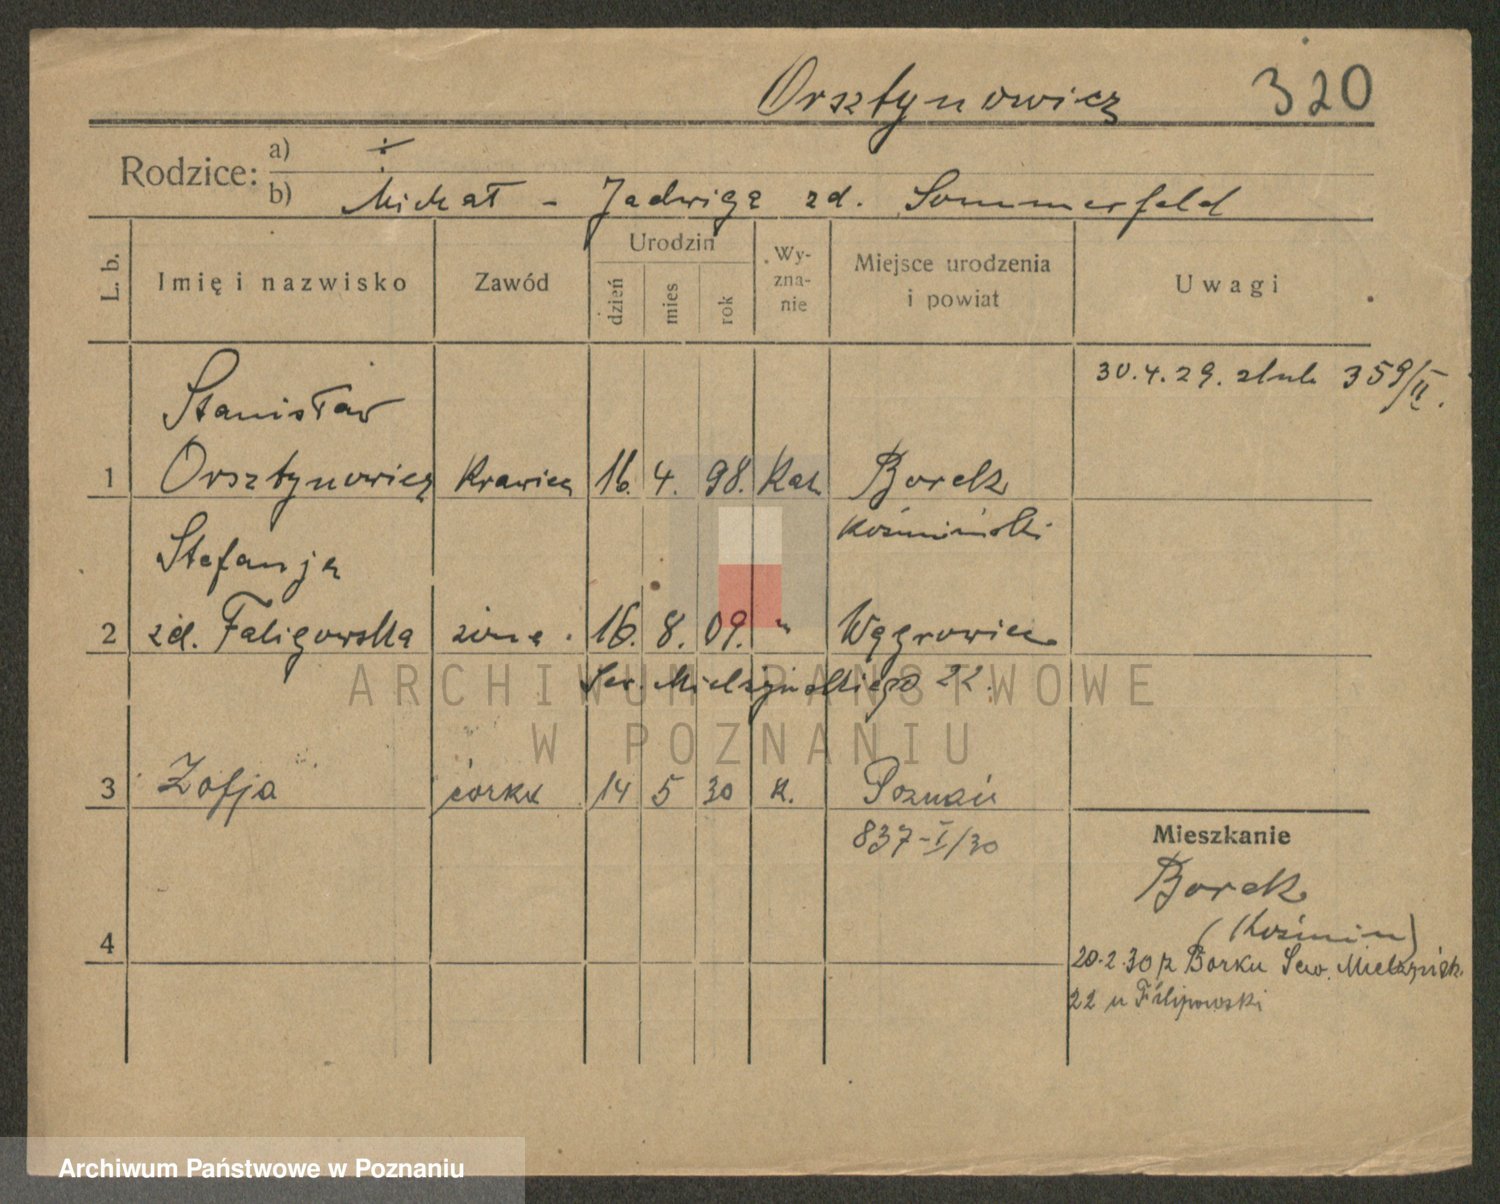 Orsztynowicz 320
Rodzice: a)
b) Michał - Jadwiga zd. Sommerfeld
L. b. Imię i nazwisko Zawód Urodzin dzień mies rok Wy-zna-nie Miejsce urodzenia i powiat Uwagi
30.4.29. ślub 359/II.
Stanisław
1 Orsztynowicz Krawiec 16. 4. 98. Kat Borek
Koźmiński
Stefanja
2 zd. Faligowska żona. 16. 8. 09. " Wągrowiec
Sew. Mielżyńskiego 22.
3 Zofja córka 14 5 30 k. Poznań
837-I/30
Mieszkanie
Borek
(Koźmin)
4
20.2.30 z Borku Sew. Mielżyńsk.
22 u Filipowski
ARCHIWUM PAŃSTWOWE
W POZNANIU
Archiwum Państwowe w Poznaniu